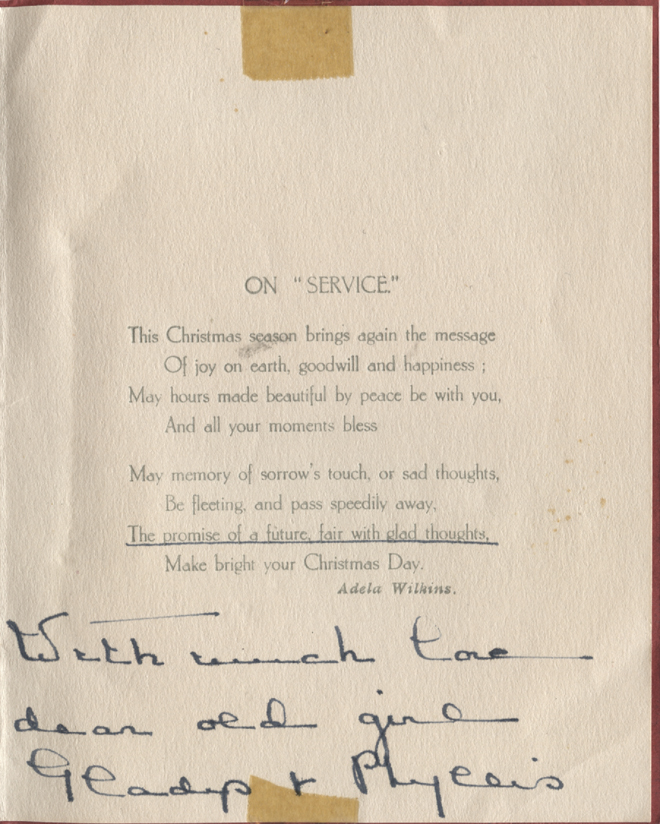 ON "SERVICE."
This Christmas season brings again the message
Of joy on earth, goodwill and happiness ;
May hours made beautiful by peace be with you,
And all your moments bless
May memory of sorrow's touch, or sad thoughts,
Be fleeting, and pass speedily away,
The promise of a future, fair with glad thoughts,
Make bright your Christmas Day.
Adela Wilkins.
With much love
dear old girl
Gladys & Phyllis